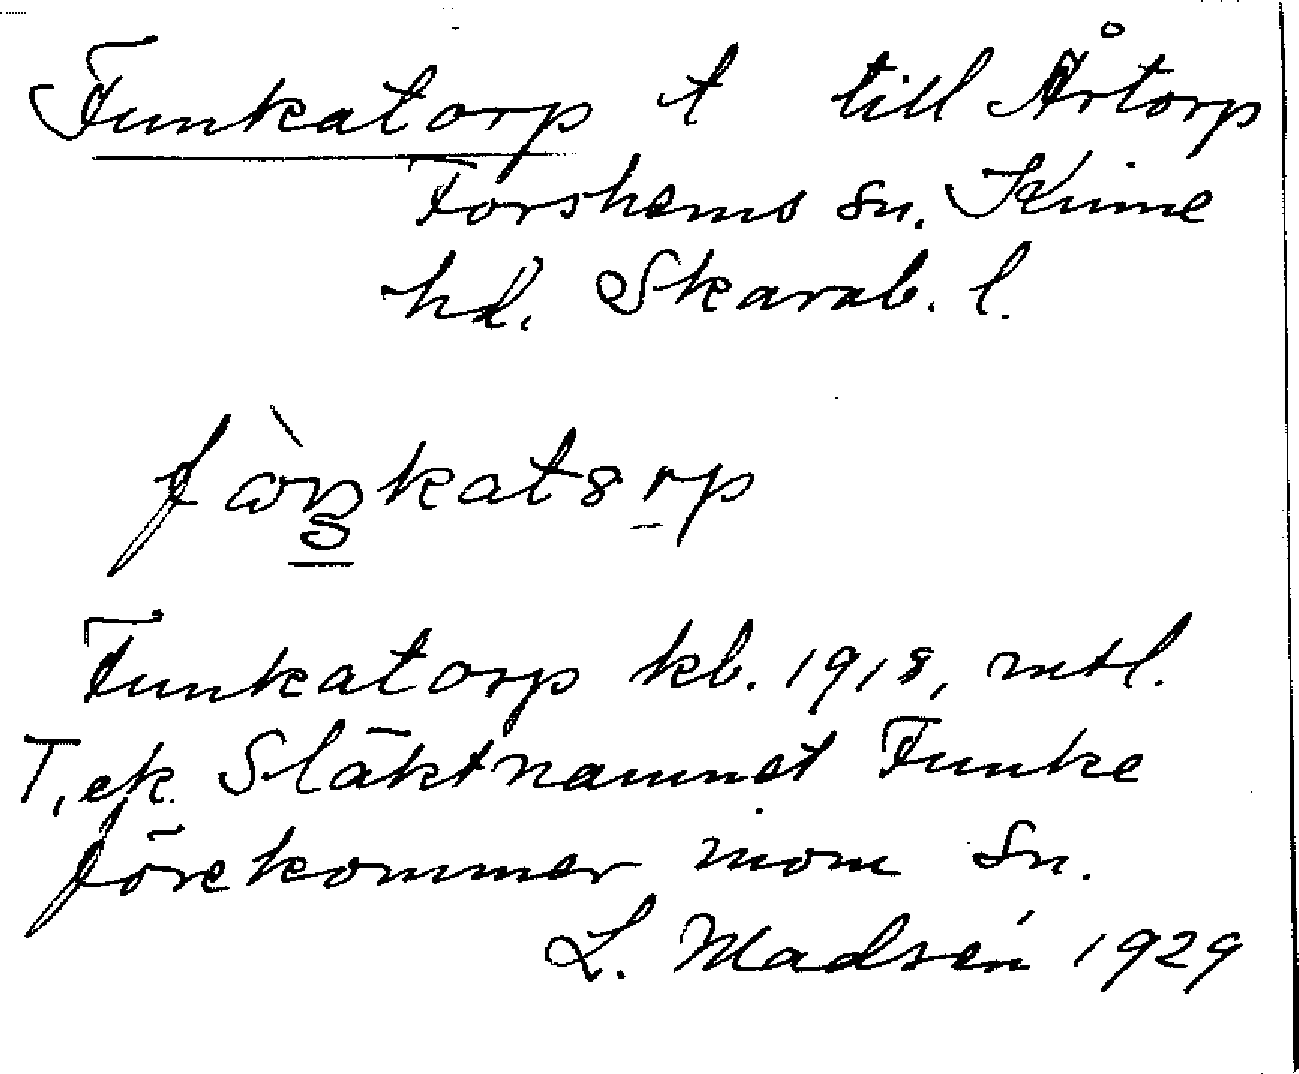 Funkatorp t till Årtorp
Forshems sn. Kinne
hd. Skarab. l.
Funkatorp kb. 1918, mtl.
T, ek. Släktnamnet Funke
förekommer inom sn.
L. Madsén 1929